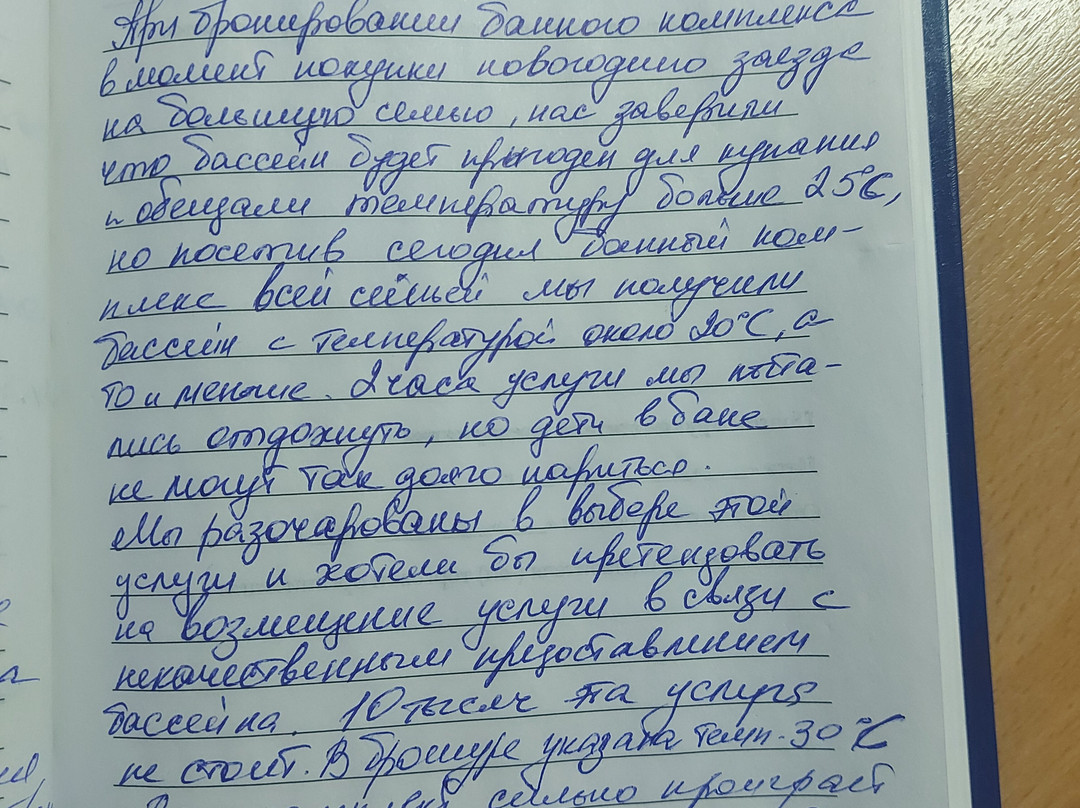 При бронировании банного комплекса
в момент покупки новогоднего заезда
на большую семью, нас заверили
что бассейн будет пригоден для купания
и обещали температуру больше 25°С,
но посетив сегодня банный ком-
плекс всей семьей мы получили
бассейн с температурой около 20°С, а
то и меньше. 2 часа услуги мы пыта-
лись отдохнуть, но дети в бане
не могут так долго париться.
Мы разочарованы в выборе этой
услуги и хотели бы претендовать
на возмещение услуги в связи с
некачественным предоставлением
бассейна. 10 тысяч эта услуга
не стоит. В брошуре указана темп. 30°С
сильно проиграет